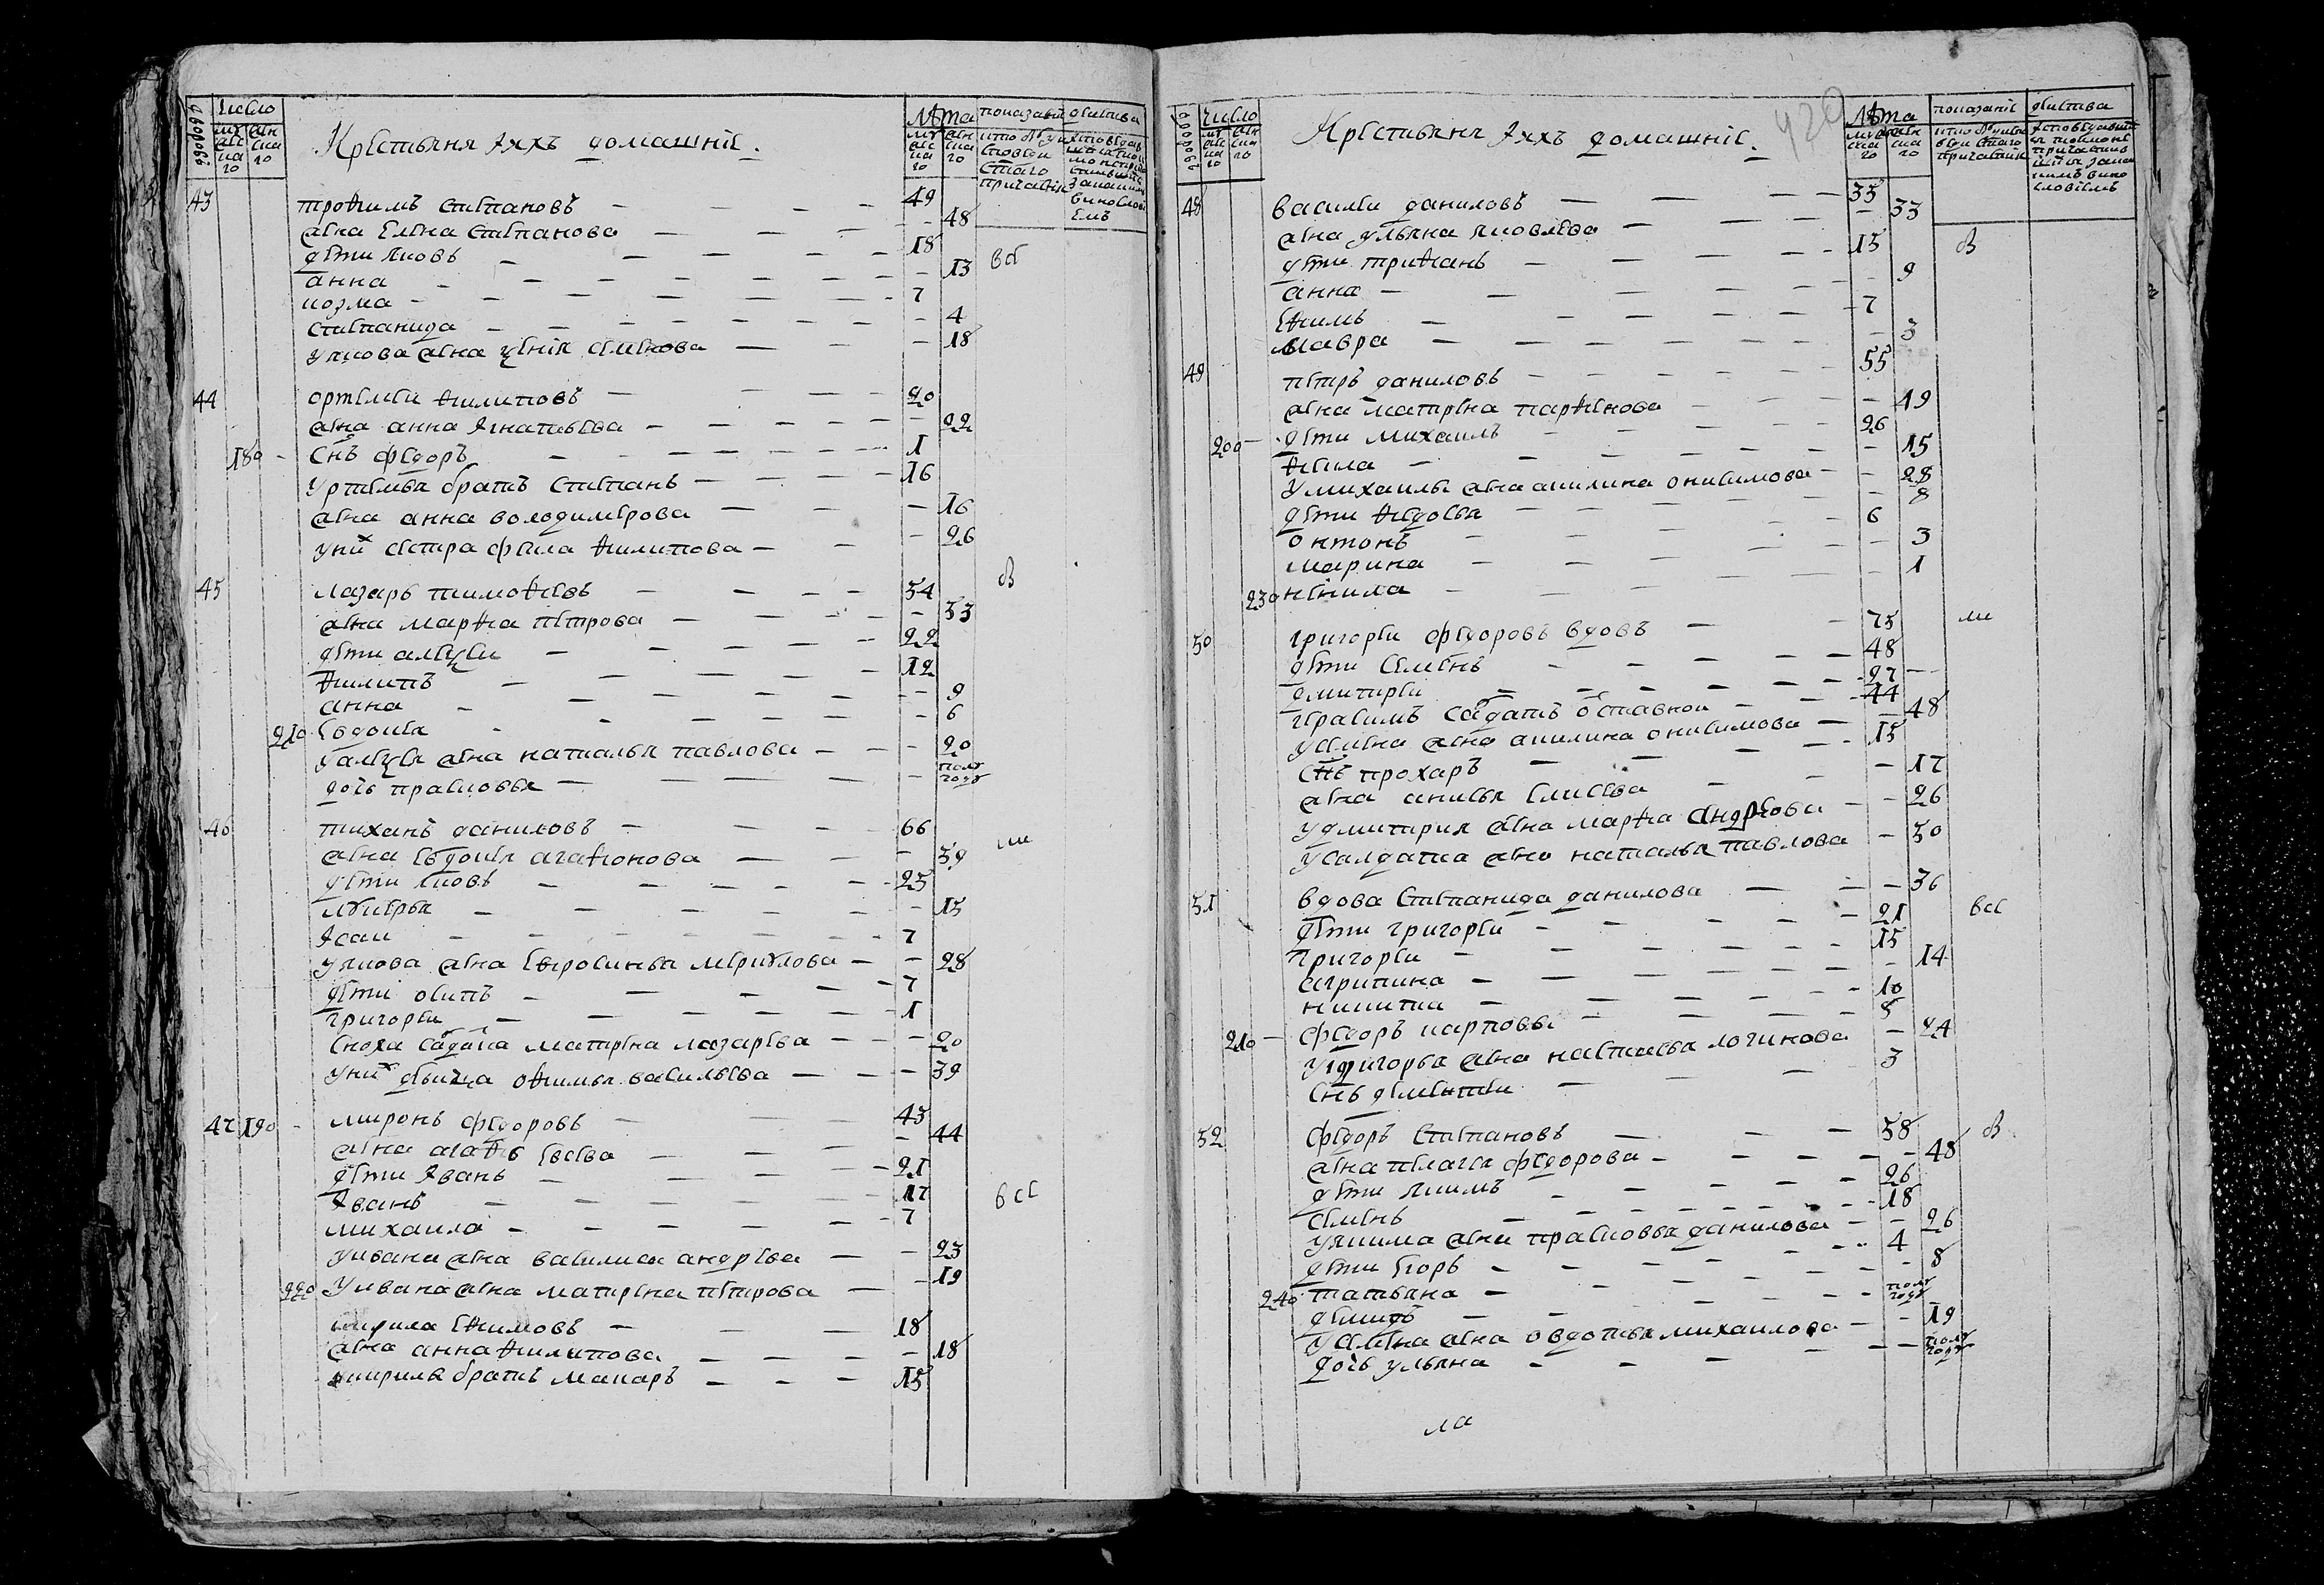 число
лѣта
показанїе
дѣиства
дворовъ
мужескаго
женскаго
Крестьяня и ихъ домашнїе.
43 трофимъ степановъ 49
жена елена степанова 48
дѣти яковъ 18
анна 13 всѣ
козма 7
степанида 4
у якова жена ѯенїя семенова 18
44 ортемеи филиповъ 20
жена анна игнатьева 22
180 снъ федоръ 1
у ртемья братъ степанъ 16
жена анна володимерова 16
у них сестра фекла филипова 26
45 лазарь тимофеевъ 54 в
жена марфа петрова 53
дѣти алеѯеи 22
филипъ 12
анна 9
210 евдокея 6
у алеѯея жена наталья павлова 20
дочь прасковья полугоду
46 тиханъ даниловъ 66
жена евдокея агафонова 59
дѣти яковъ 25
лукерья 15
исаи 7
у якова жена ефросинья меркулова 28
дѣти осипъ 7
григореи 1
сноха салдатка матрена лазарева 20
у них девица офимья васильева 39
47 190 миронъ федоровъ 45
жена агафья евсева 44
дѣти иванъ 21
иванъ 17 всѣ
михаила 7
у ивана жена василиса андреева 23
220 у ивана жена матрена петрова 19
кирила ефимовъ 18
жена анна филипова 18
у кирилы братъ макаръ 15
420
дворовъ
число
лѣта
показанїе
дѣиства
мужескаго
женскаго
Крестьяня и ихъ домашнїе.
48 василеи даниловъ 35
жена ульяна яковлева 33
дѣти трифанъ 15 в
анна 9
ефимъ 7
мавра 3
49 петръ даниловъ 55
жена матрена парфенова 49
200 дѣти михаилъ 26
фекла 15
у михаилы жена акилина онисимова 28
дѣти федосья 8
онтонъ 6
марина 3
230 ненила 1
50 григореи федоровъ вдовъ 75
дѣти семенъ 48
дмитреи 27
герасимъ салдатъ оставнои 44
у семена жена акилина онисимова 48
снъ прохаръ 15
жена анисья елисева 17
у дмитрия жена марфа андреова 26
у салдата жена наталья павлова 50
51 вдова степанида данилова 36 всѣ
дѣти григореи 21
григореи 15
агрипина 14
никитка 10
210 федоръ карповъ 8
у григорья жена настасья логинова 24
снъ дементеи 3
52 федоръ степановъ 58 в
жена пелагея федорова 48
дѣти якимъ 26
семенъ 18
у якима жена прасковья данилова 26
дѣти егоръ 4
240 татьяна 8
демидъ полугоду
у семена жена овдотья михаилова 19
дочь ульяна полугоду